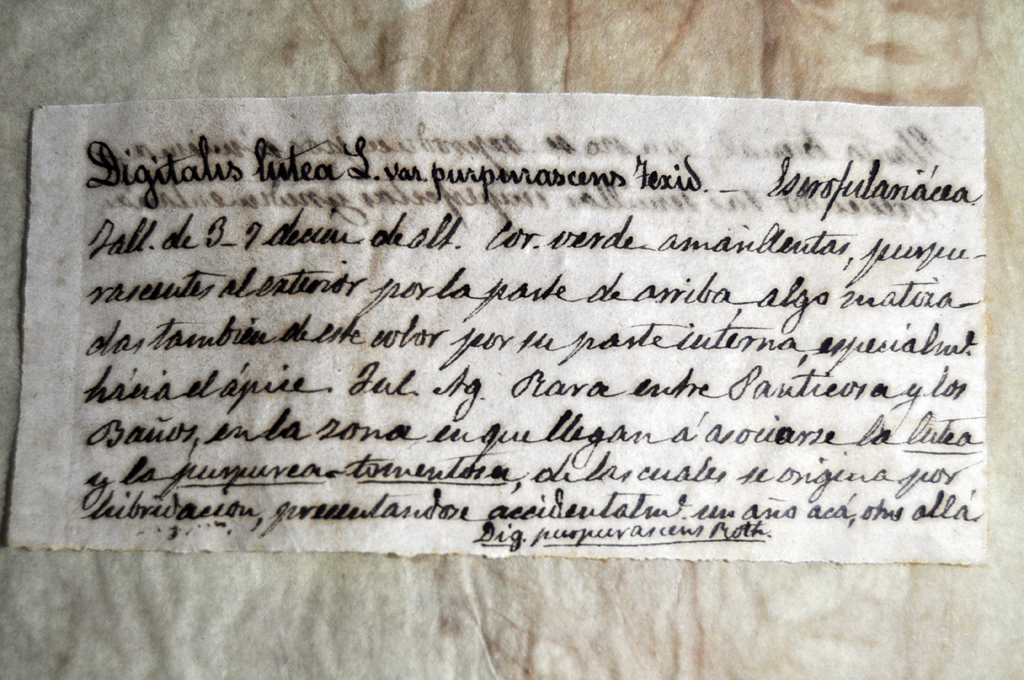 Digitalis lutea L. var. purpurascens Texid. — Escrofulariácea
Tall. de 3-7 decim de alt. Cor. verde amarillentas, purpu-
rascentes al exterior por la parte de arriba, algo matiza-
das también de este color por su parte interna, especialmte.
hácia el ápice. Jul. Ag. Rara entre Panticosa y los
Baños, en la zona en que llegan á asociarse la lutea
y la purpurea-tomentosa, de las cuales se origina por
hibridacion, presentandose accidentalmte. un año acá, otro allá
Dig. purpurascens Roth.